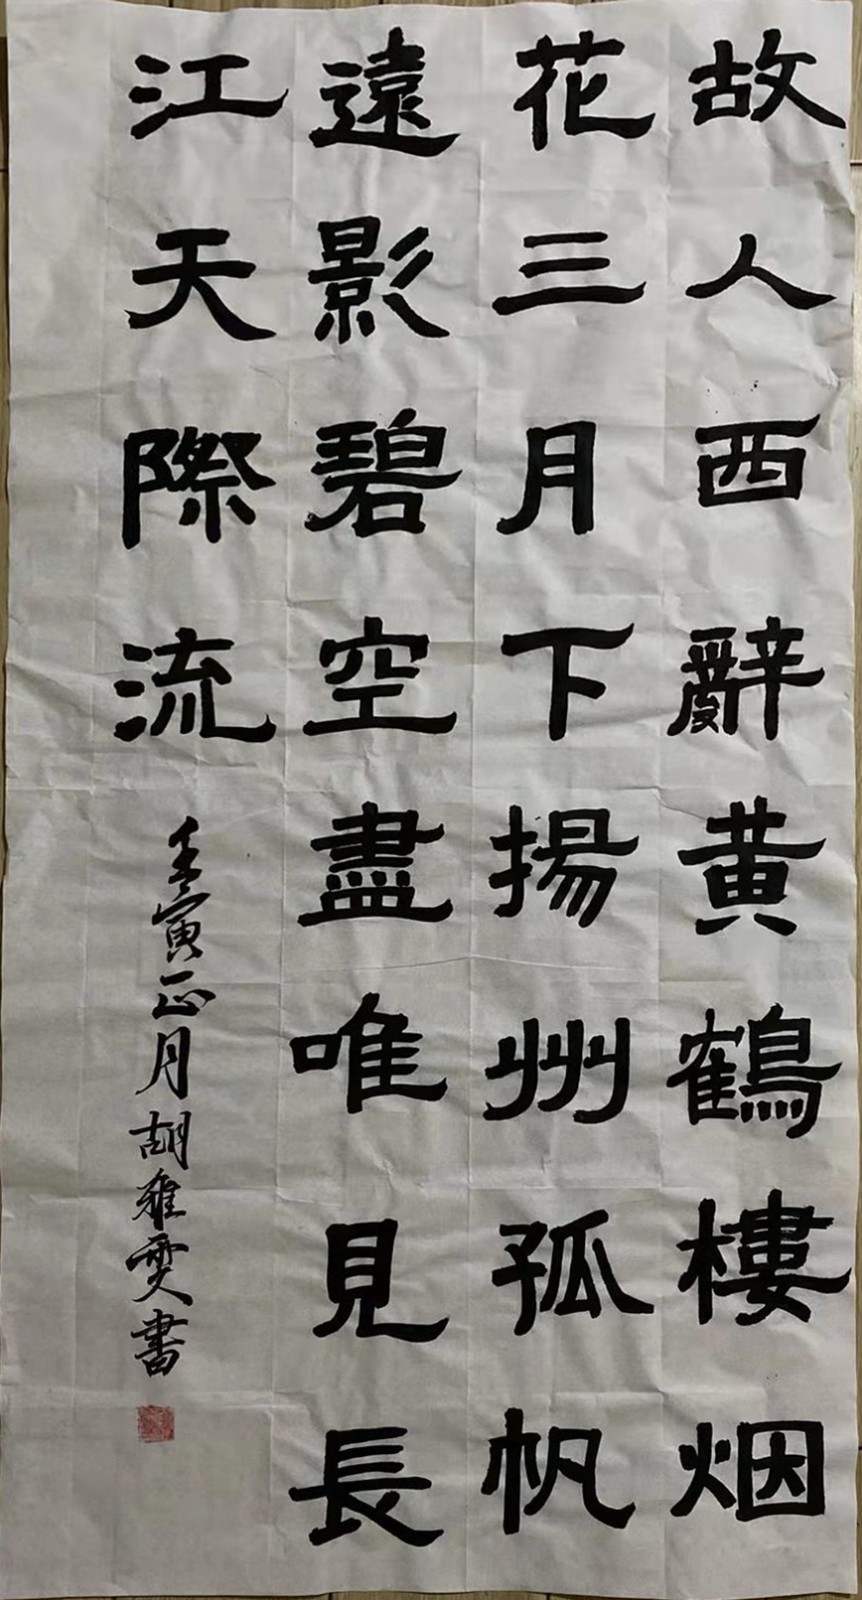 故人西辭黄鶴樓烟
花三月下揚州孤帆
遠影碧空盡唯見長
江天際流
壬寅正月胡雅雯書